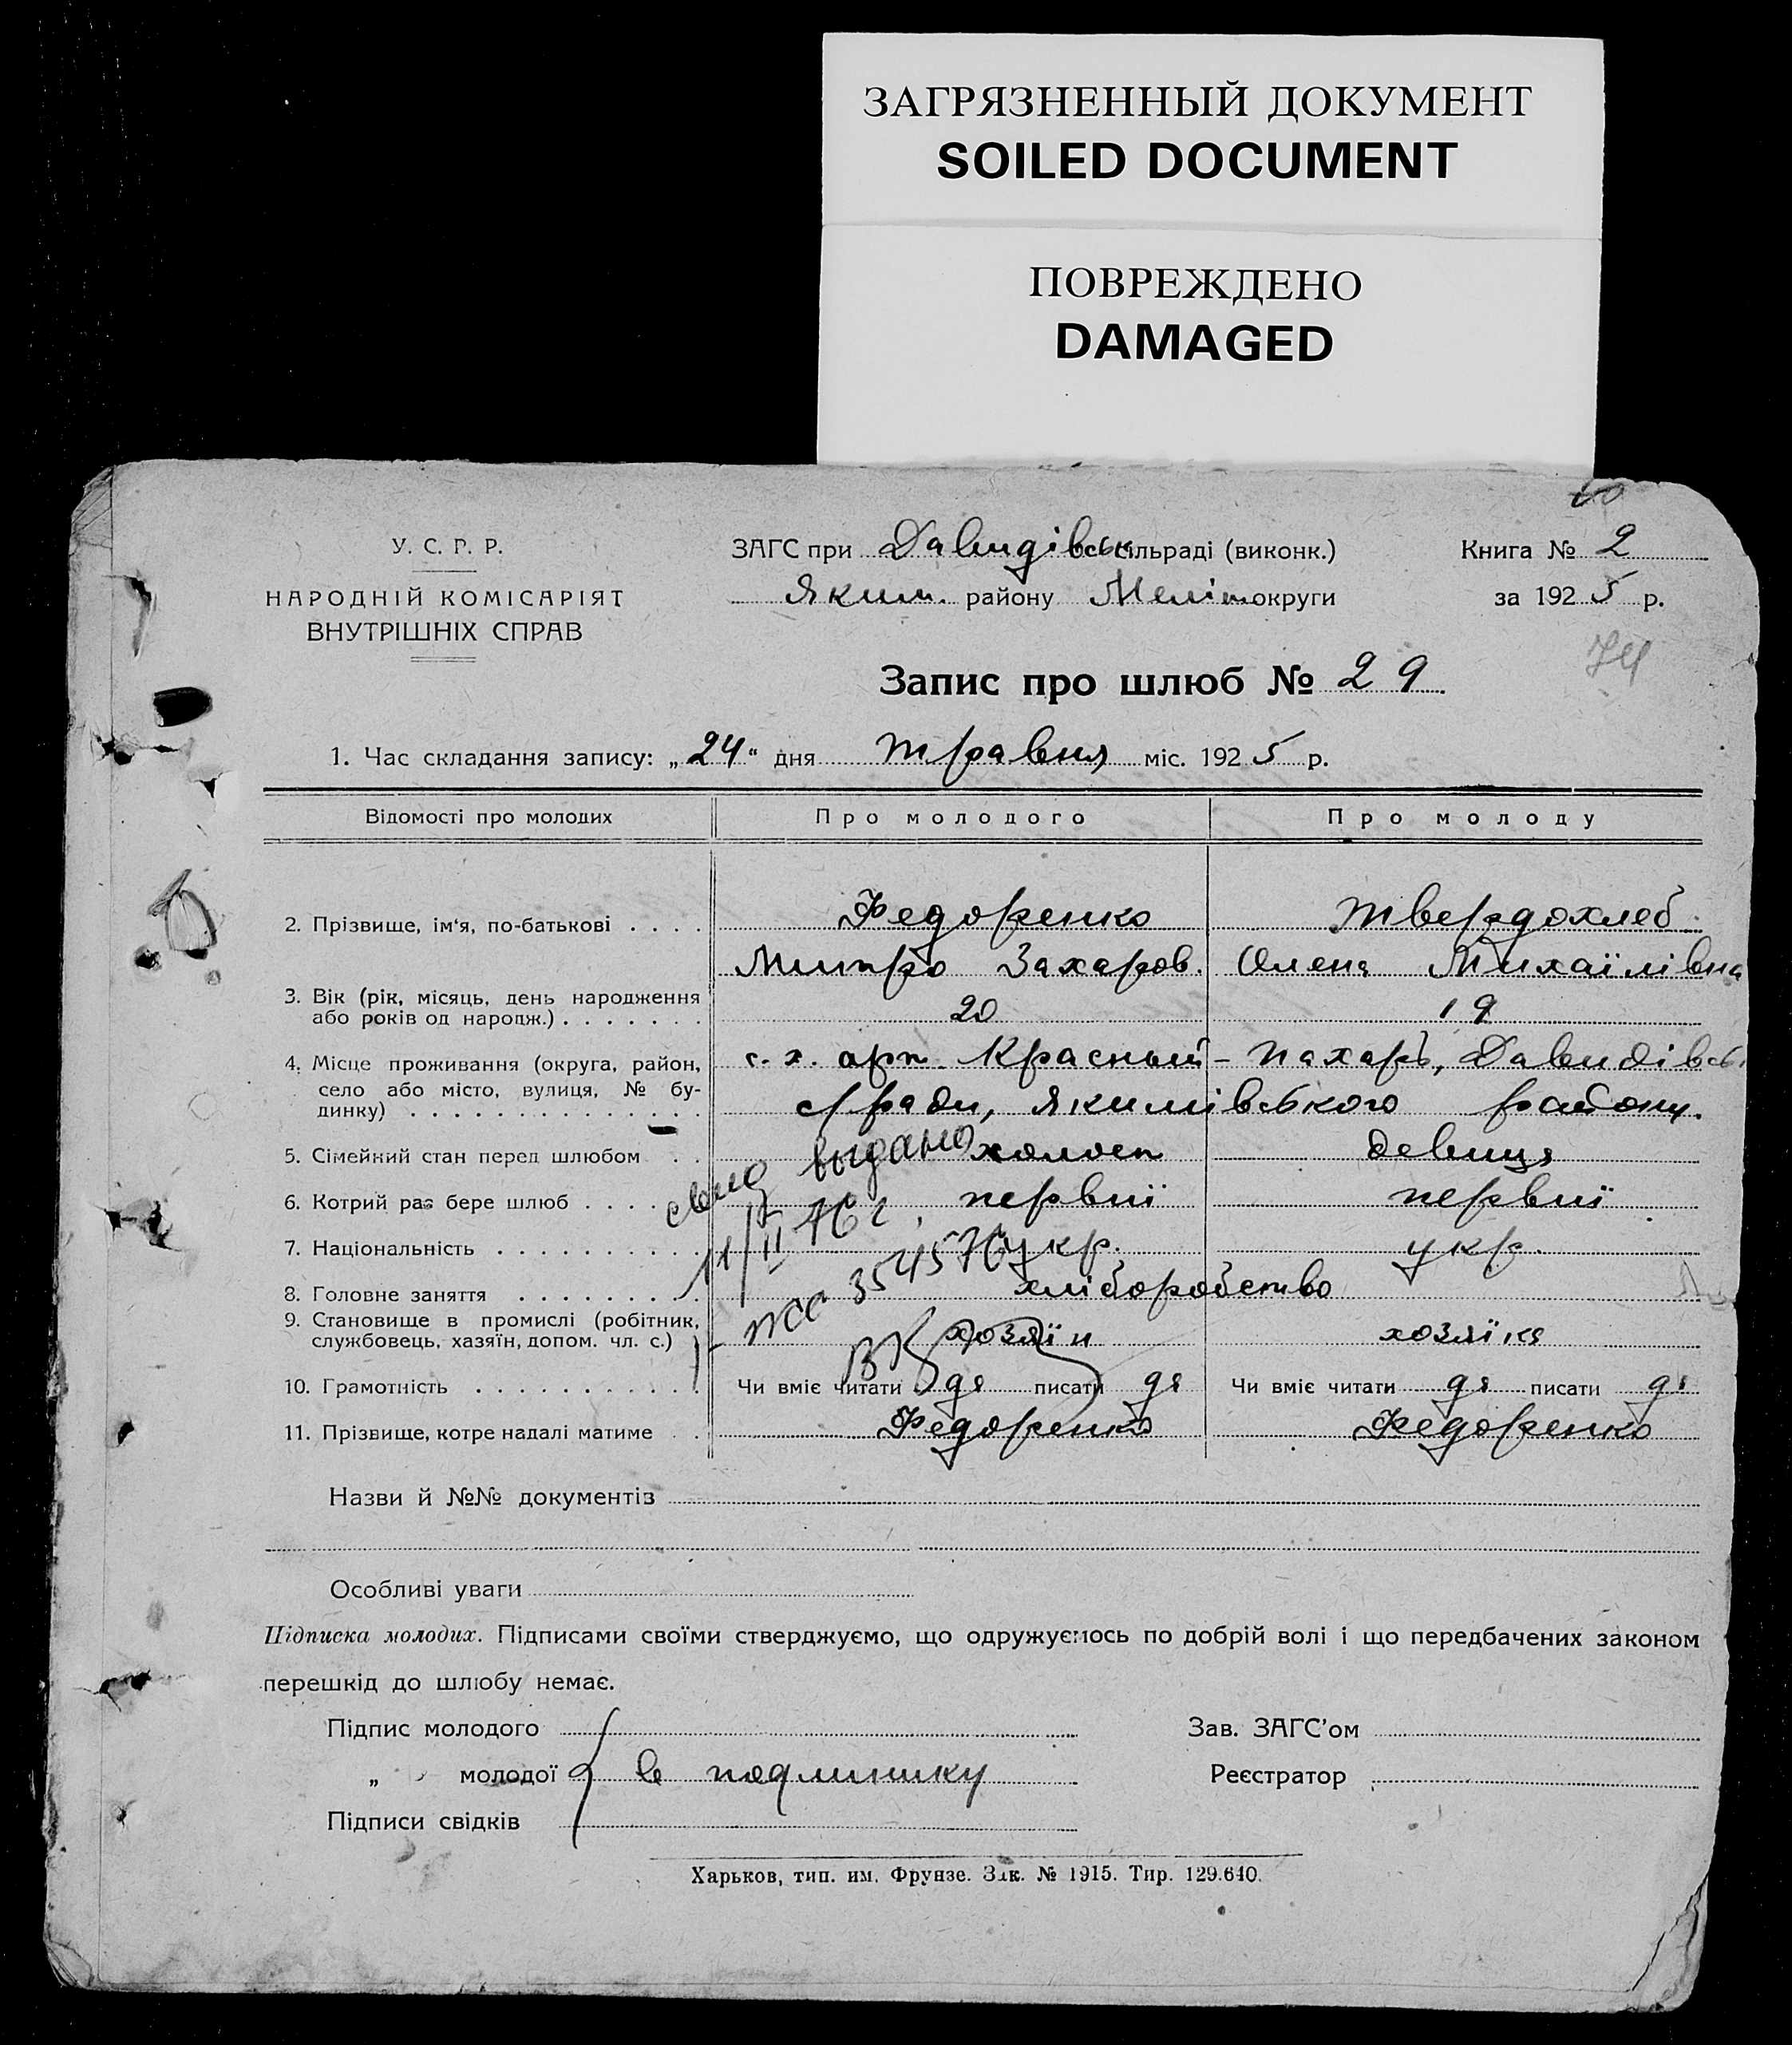 ЗАГРЯЗНЕННЫЙ ДОКУМЕНТ
SOILED DOCUMENT
ПОВРЕЖДЕНО
DAMAGED
У. С. Р. Р.
НАРОДНІЙ КОМІСАРІЯТ
ВНУТРІШНІХ СПРАВ
ЗАГС при Давидівськ сільраді (виконк.)
Яким. району Меліт округи
Книга № 2
за 1925 р.
74
Запис про шлюб № 29
1. Час складання запису: „24“ дня травня міс. 1925 р.
Відомості про молодих Про молодого Про молоду
2. Прізвище, ім‘я, по-батькові . . . . Федоренко Твердохлеб
Митро Захаров. Олена Михаїлівна
3. Вік (рік, місяць, день народження
або років од нарож.) . . . . . . . 20 19
4. Місце проживання (округа, район, с. х. арт. Красный - Пахарь, Давидівськ
село або місто, вулиця, № бу-
динку) . . . . . . . . . . . . . с/ради, Якимівського району.
5. Сімейний стан перед шлюбом . . холост девиця
6. Котрий раз бере шлюб . . . . . первиї первиї
7. Національність . . . . . . . . . . укр. укр.
8. Головне заняття . . . . . . . . . хліборобство
9. Становище в промислі (робітник,
службовець, хазяїн, допом. чл. с.) хозяїн хозяїка
выдано
11/II 76 г.
354576
10. Грамотність . . . . . . . . . . . Чи вміє читати да писати да Чи вміє читати да писати да
11. Прізвище, котре надалі матиме . . Федоренко Федоренко
Назви й №№ документів
Особливі уваги
Підписка молодих. Підписами своїми стверджуємо, що одружуємось по добрій волі і що передбачених законом
перешкід до шлюбу немає.
Підпис молодого Зав. ЗАГС’ом
„ молодої в подлинику Реєстратор
Підписи свідків
Харьков, тип. им. Фрунзе. Зак. № 1915. Тир. 129.640.